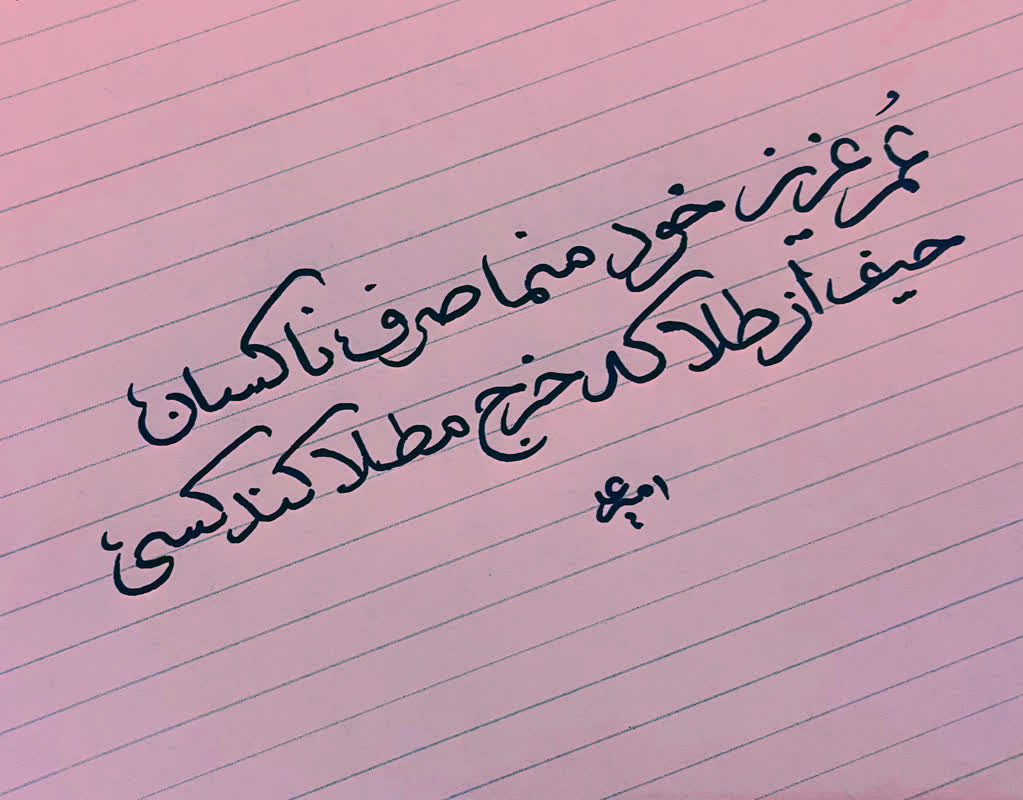 عُمر عزیز خود منما صرف ناکسان
حیف از طلا که خرج مطلا کند کسی